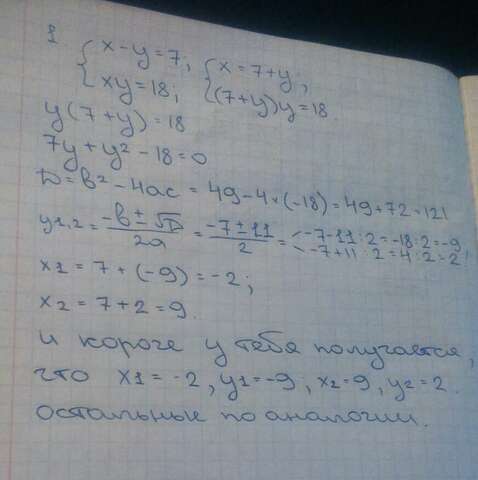 1 { x-y=7; { x=7+y;
{ xy=18; { (7+y)y=18.
y(7+y)=18
7y+y²-18=0
D=b²-4ac=49-4×(-18)=49+72=121
y1,2= (-b±√D)/2a = (-7±11)/2 = < -7-11:2=-18:2=-9,
< -7+11:2=4:2=2!
x1=7+(-9)=-2;
x2=7+2=9.
и короче у тебя получается,
что x1=-2, y1=-9, x2=9, y2=2.
остальные по аналогии.